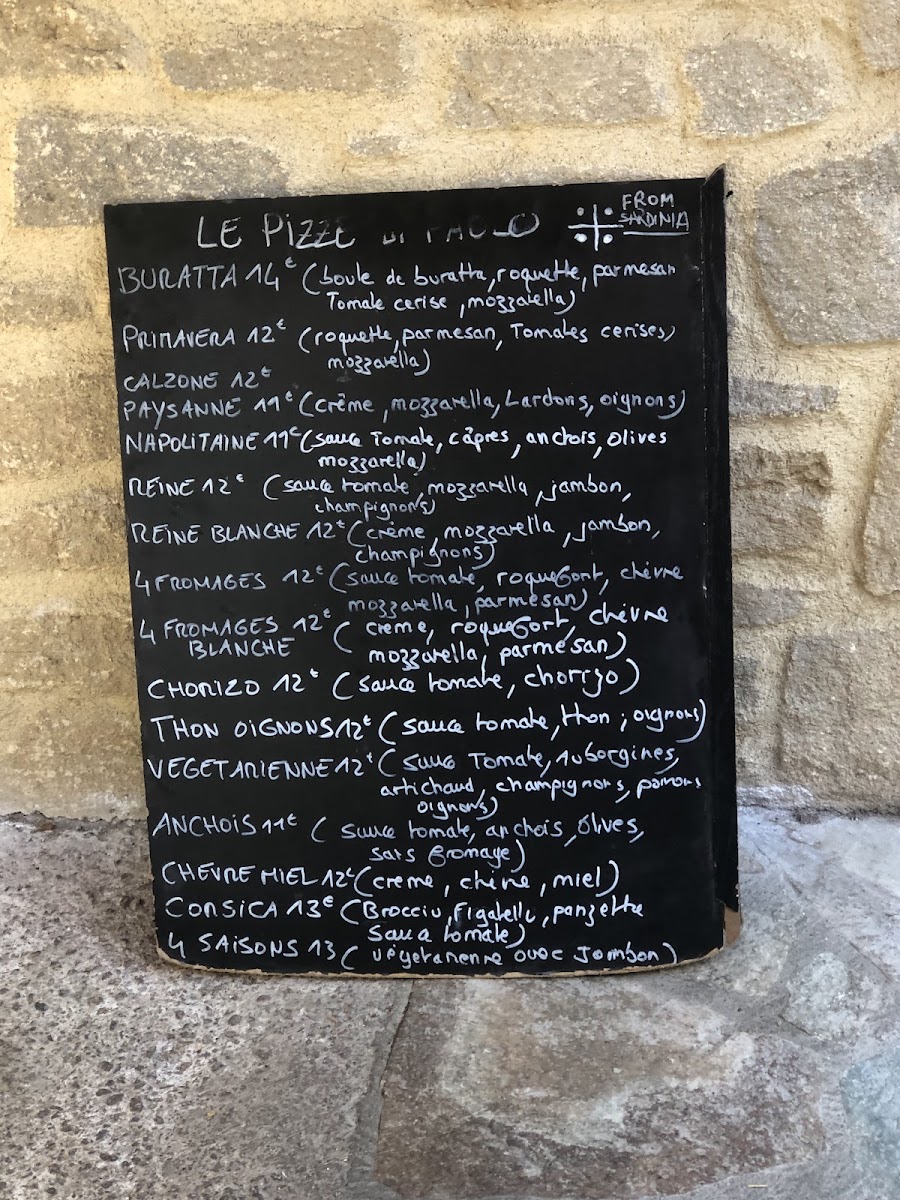 LE PIZZE DI PAOLO
FROM
SARDINIA
BURATTA 14€ (boule de buratta, roquette, parmesan
Tomate cerise, mozzarella)
PRIMAVERA 12€ (roquette, parmesan, Tomates cerises,
mozzarella)
CALZONE 12€
PAYSANNE 11€ (crême, mozzarella, Lardons, oignons)
NAPOLITAINE 11€ (sauce Tomate, câpres, anchois, olives
mozzarella)
REINE 12€ (sauce tomate, mozzarella, jambon,
champignons)
REINE BLANCHE 12€ (crème, mozzarella, jambon,
champignons)
4 FROMAGES 12€ (sauce tomate, roquefort, chèvre
mozzarella, parmesan)
4 FROMAGES 12€ (creme, roquefort, chèvre
BLANCHE mozzarella, parmesan)
CHORIZO 12€ (sauce tomate, chorizo)
THON OIGNONS 12€ (sauce tomate, thon, oignons)
VEGETARIENNE 12€ (sauce Tomate, auborgines,
artichaud, champignons, poivrons
oignons)
ANCHOIS 11€ (sauce tomate, anchois, olives,
sans fromage)
CHEVRE MIEL 12€ (creme, chèvre, miel)
CORSICA 13€ (Brocciu, Figatellu, panzette
sauce tomate)
4 SAISONS 13 (végétarienne avec Jambon)